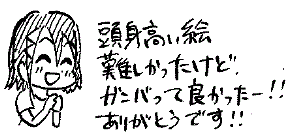 頭身高い絵
難しかったけど
ガンバって良かったー!!
ありがとうです!!